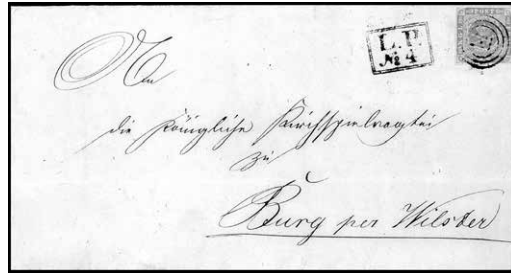 L.P.
№ 4.
An
die Königliche Kirchspielvogtei
zu
Burg per Wilster